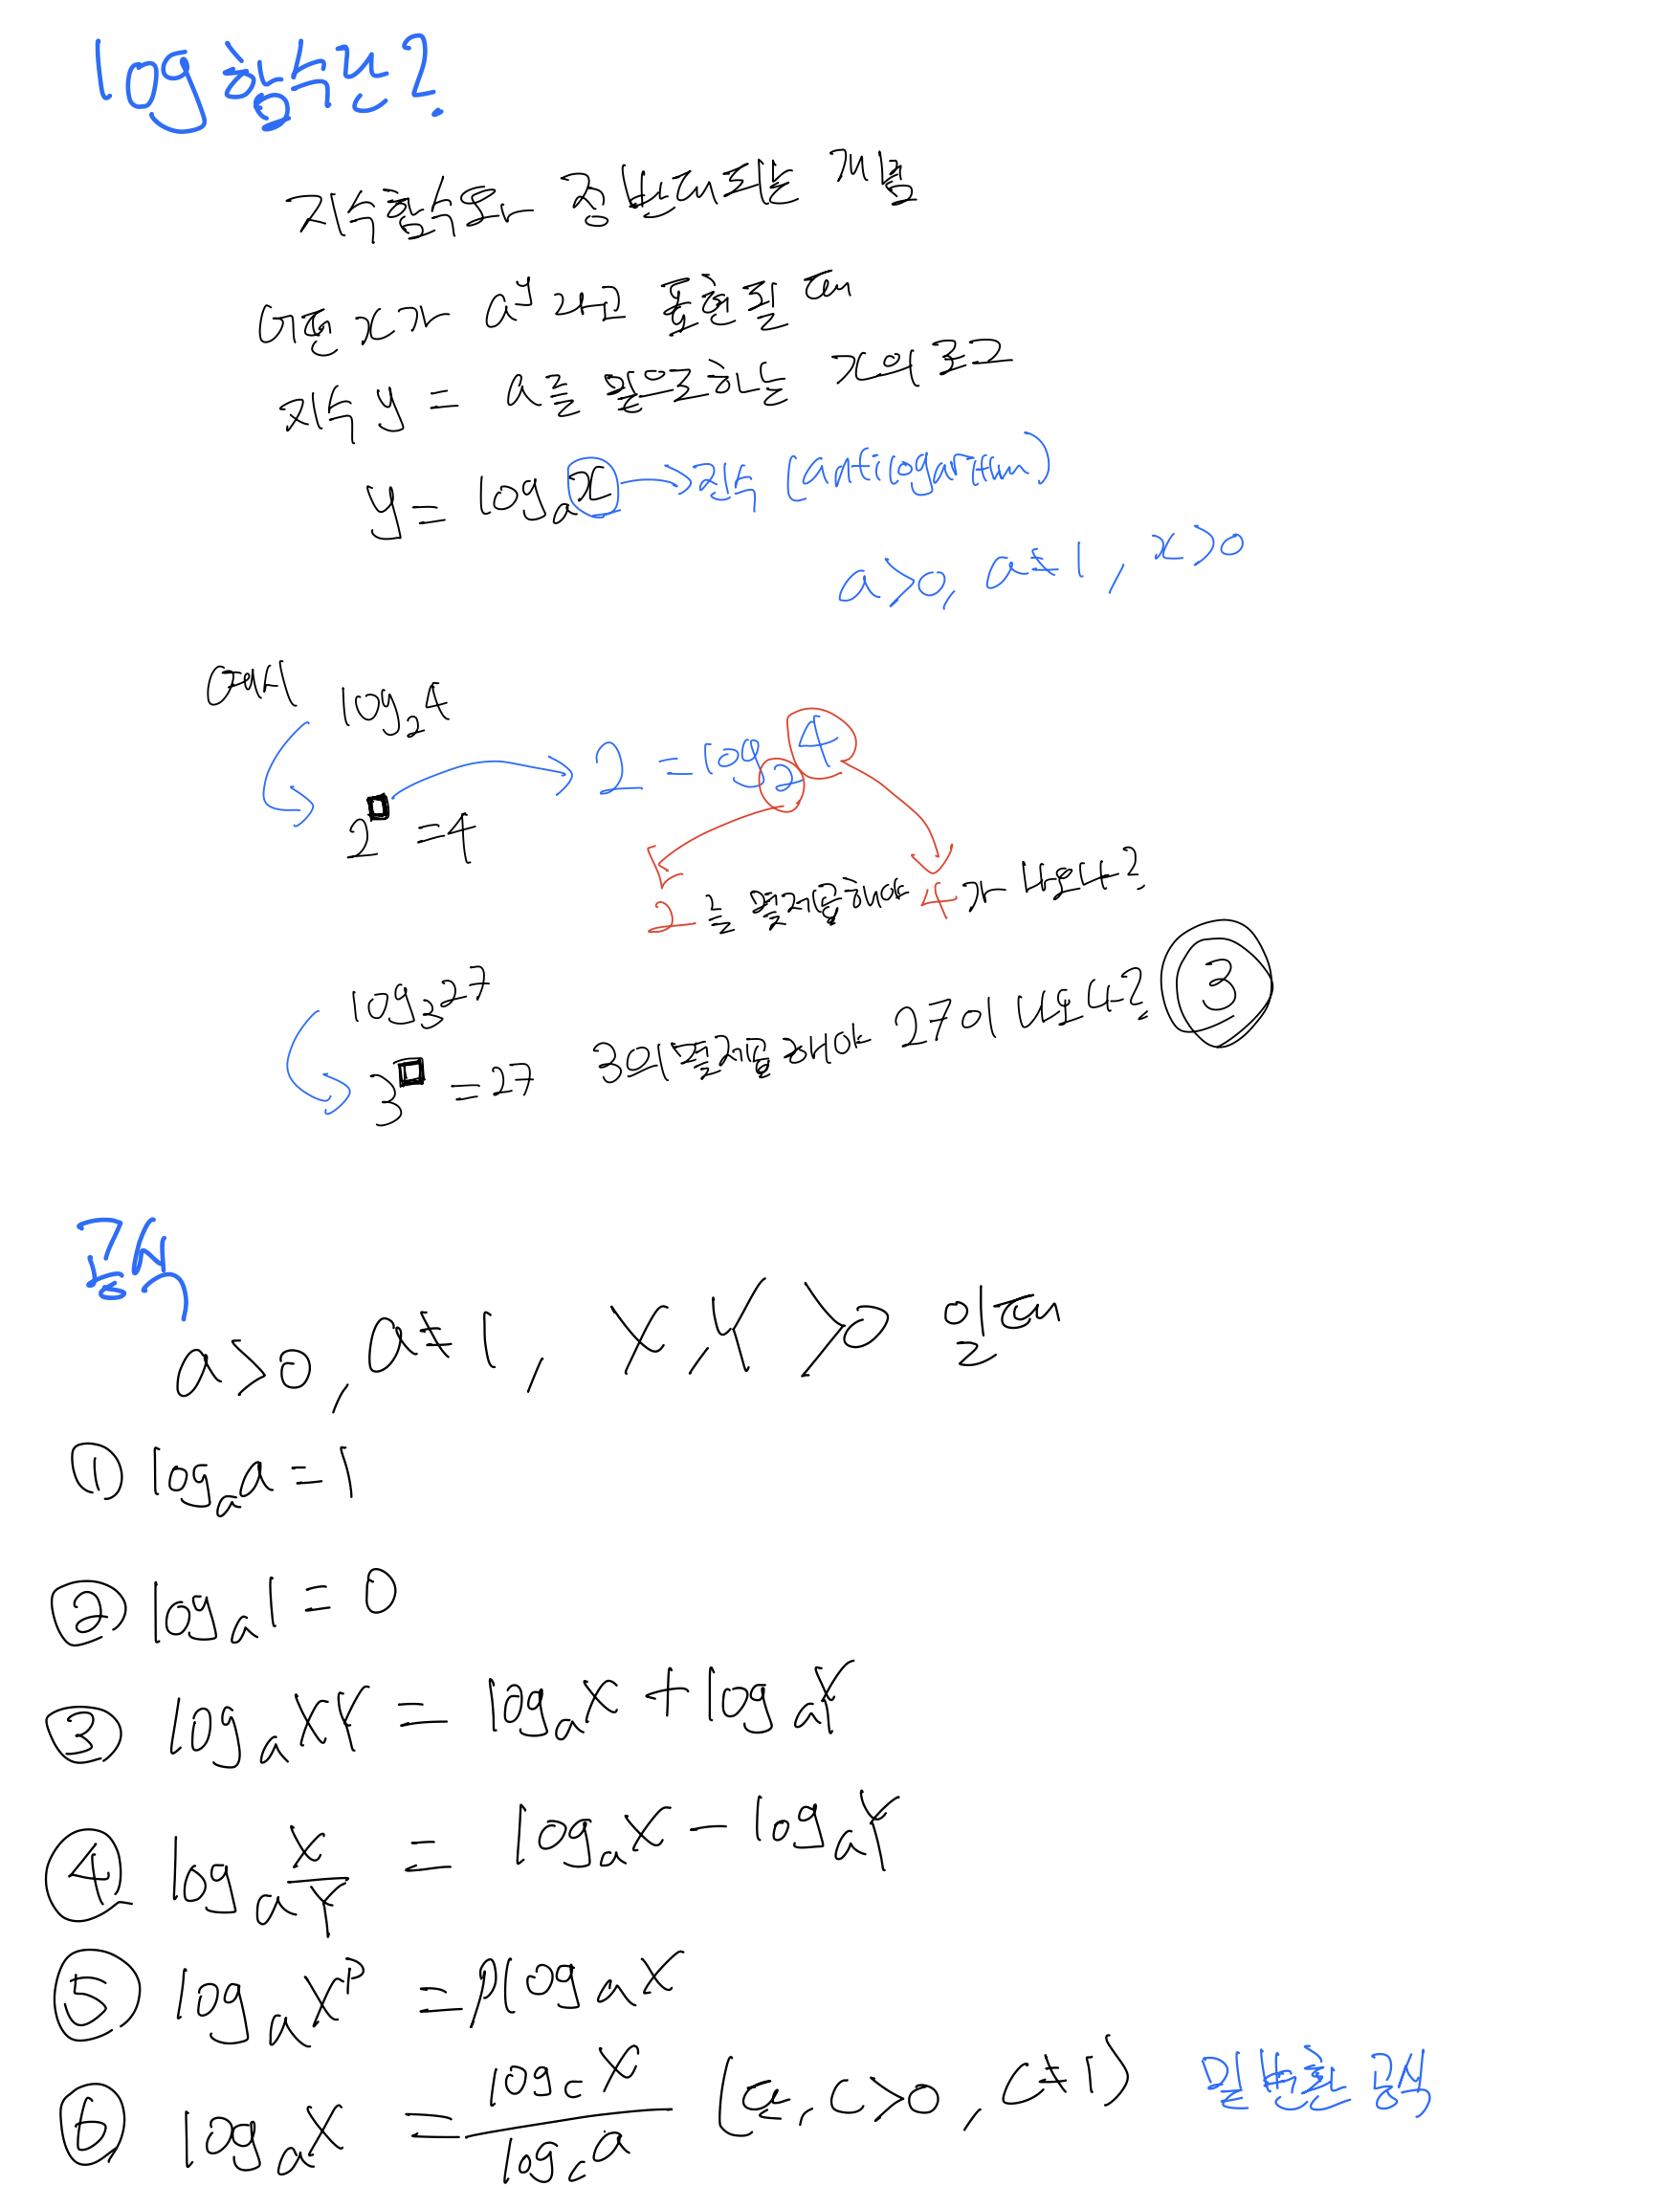 log함수란?
지수함수와 정반대되는 개념
어떤 x가 a^y 라고 표현될 때
지수 y = a를 밑으로하는 x의 로그
y = log_a x → 진수 (antilogarithm)
a>0, a≠1, x>0
예시 log_2 4
2 = log_2 4
2^□ = 4
2를 몇제곱해야 4가 나오나?
log_3 27
3^□ = 27 3의 몇제곱 해야 27이 나오나? ③
공식
a>0, a≠1, X, Y >0 일때
① log_a a = 1
② log_a 1 = 0
③ log_a XY = log_a X + log_a Y
④ log_a X/Y = log_a X - log_a Y
⑤ log_a X^p = p log_a X
⑥ log_a X = log_c X / log_c a (a, c>0, c≠1) 밑 변환 공식